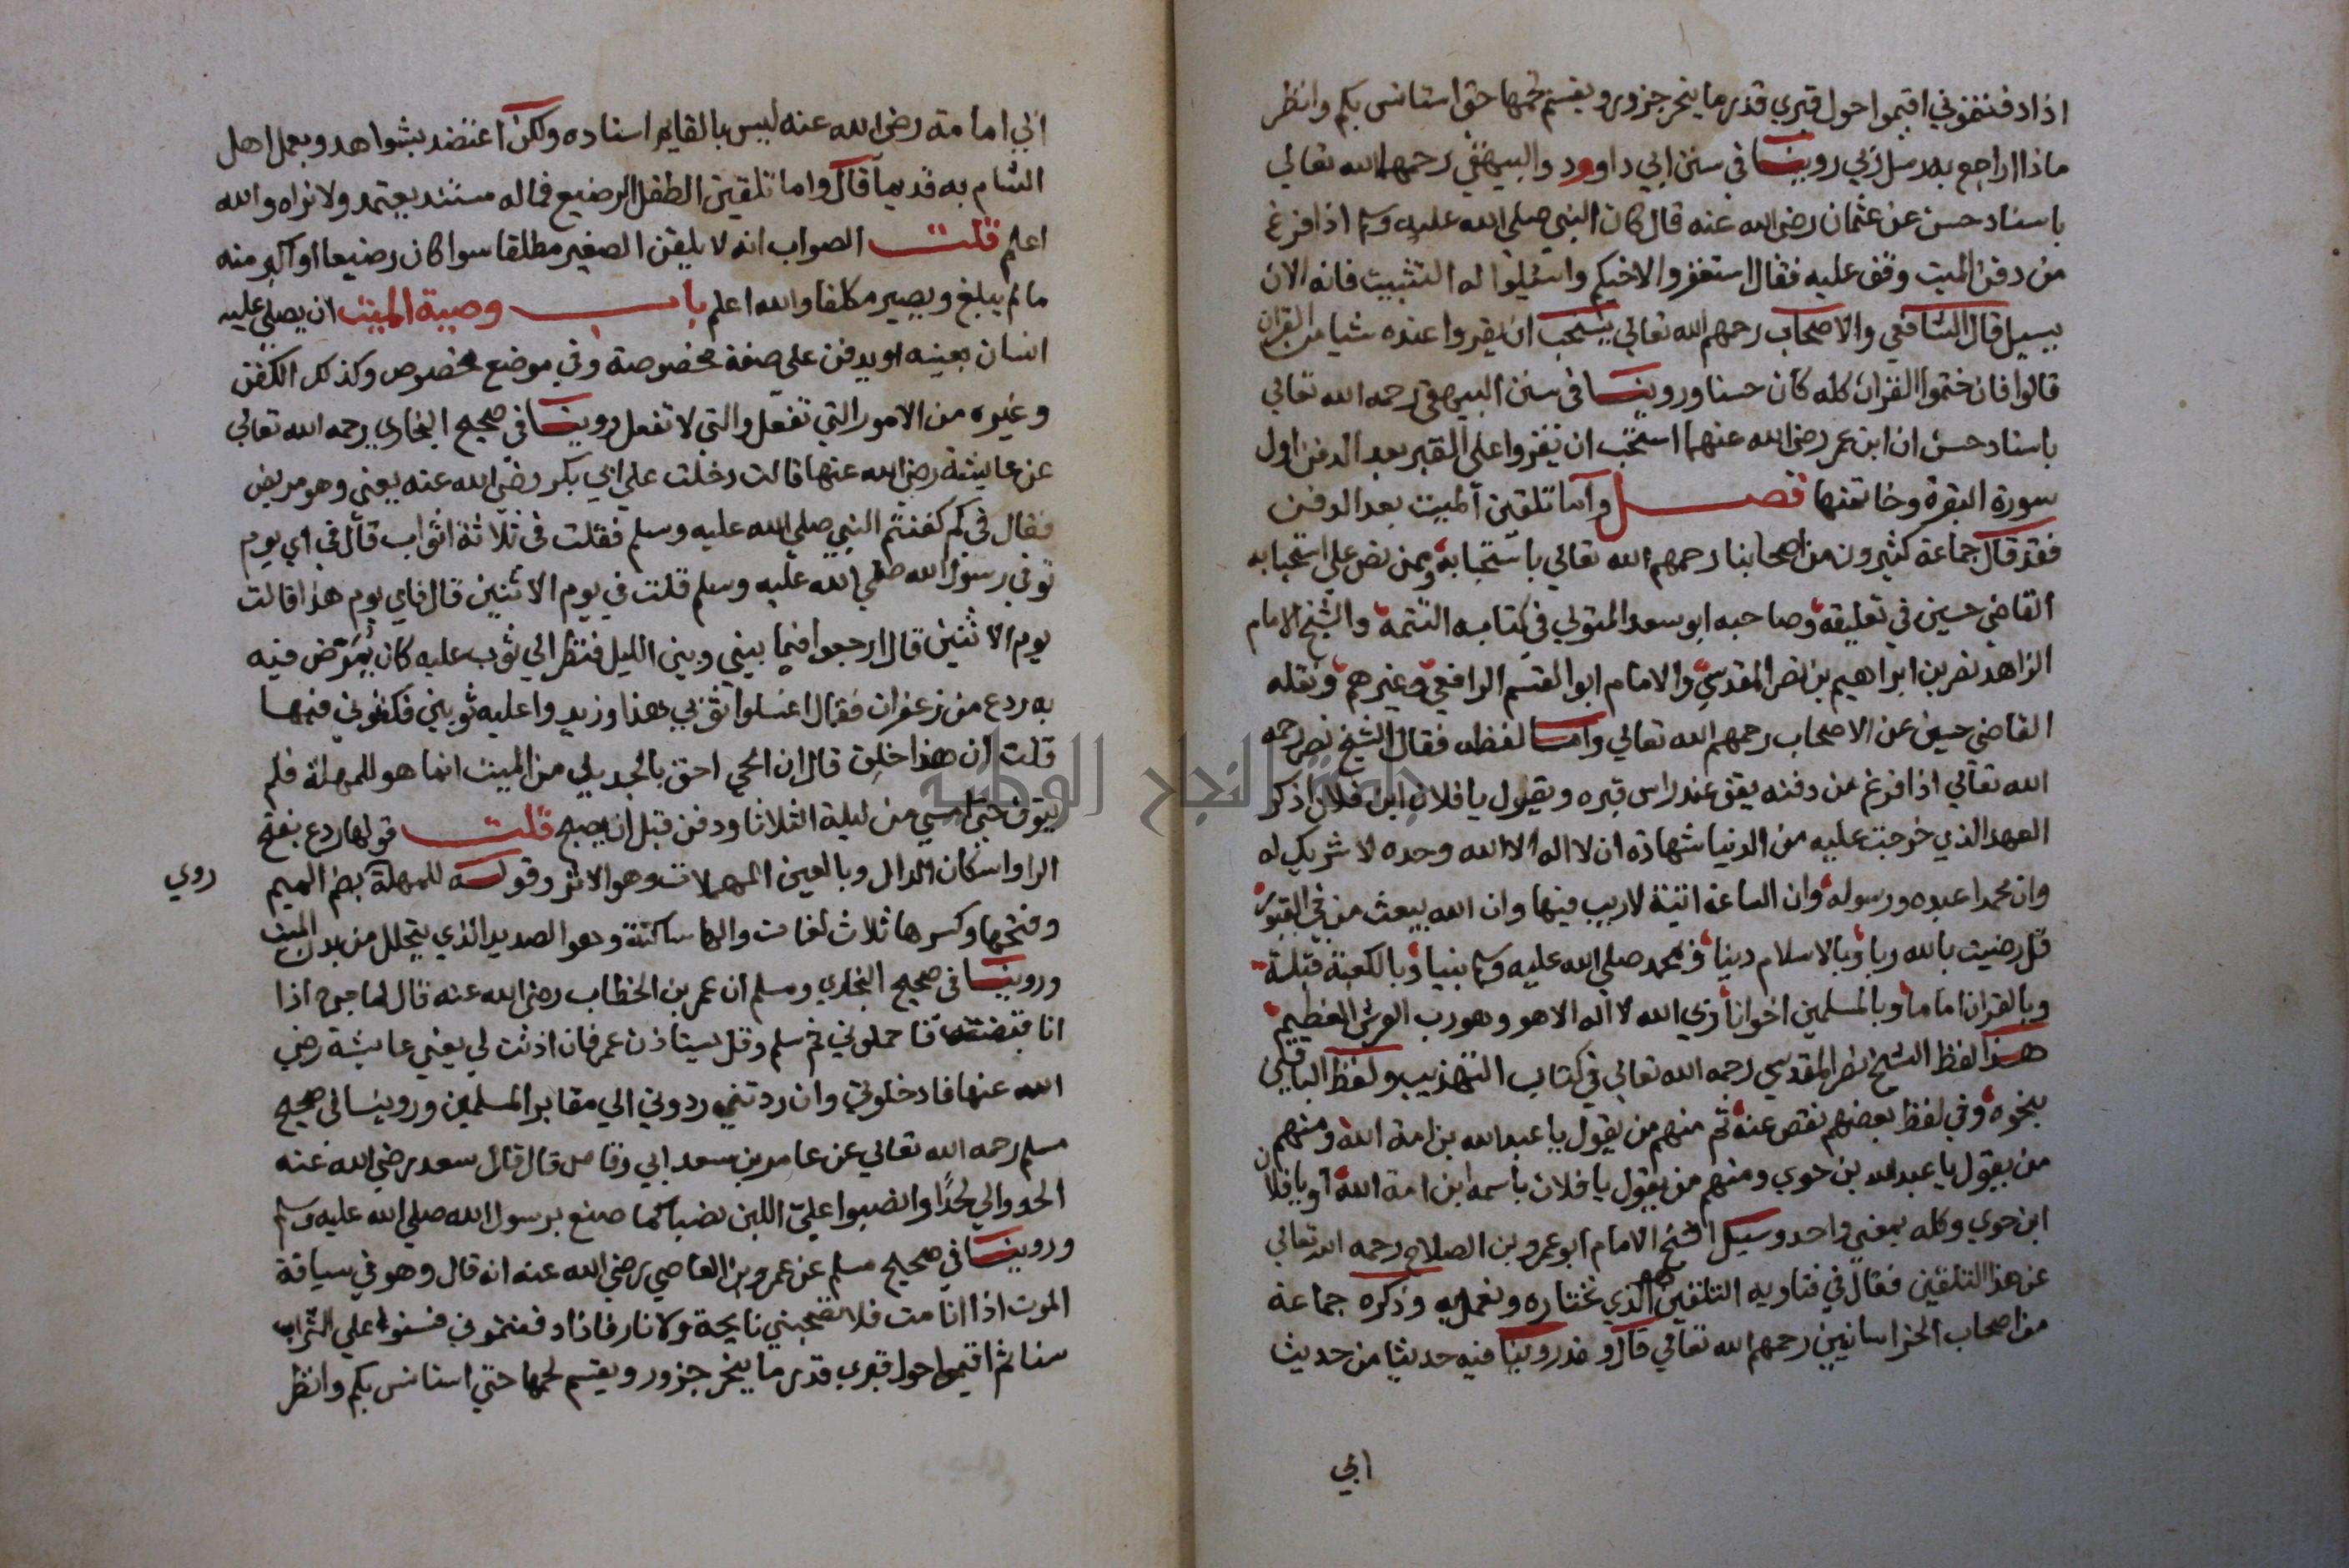 اذا دفنتموني اقيموا حول قبري قدر ما ينحر جزور ويقسم لحمها حتى استانس بكم وانظر
ماذا اراجع به رسل ربي روينا في سنن ابي داوود والبيهقي رحمهما الله تعالي
باسناد حسن عن عثمان رضي الله عنه قال كان النبي صلي الله عليه وسلم اذا فرغ
من دفن الميت وقف عليه فقال استغفروا لاخيكم واسئلوا له التثبيت فانه الان
يسيل قال الشافعي والاصحاب رحمهم الله تعالي يستحب ان يقروا عنده شيا من القران
قالوا فان ختموا القران كله كان حسنا وروينا في سنن البيهقي رحمه الله تعالي
باسناد حسن ان ابن عمر رضي الله عنهما استحب ان يقروا علي القبر بعد الدفن اول
سورة البقرة وخاتمتها فصل واما تلقين الميت بعد الدفن
فقد قال جماعة كثيرون من اصحابنا رحمهم الله تعالي باستحبابه وممن نص علي استحبابه
القاضي حسين في تعليقه وصاحبه ابو سعد المتولي في كتابه التتمة والشيخ الامام
الزاهد نصر بن ابراهيم بن نصر المقدسي والامام ابو القسم الرافعي وغيرهم ونقله
القاضي حسين عن الاصحاب رحمهم الله تعالي واما لفظه فقال الشيخ نصر رحمه
الله تعالي اذا فرغ من دفنه يقف عند راس قبره ويقول يا فلان ابن فلان اذكر
العهد الذي خرجت عليه من الدنيا شهادة ان لا اله الا الله وحده لا شريك له
وان محمدا عبده ورسوله وان الساعة اتية لا ريب فيها وان الله يبعث من في القبور
قل رضيت بالله ربا وبالاسلام دينا وبمحمد صلي الله عليه وسلم نبيا وبالكعبة قبلة
وبالقران اماما وبالمسلمين اخوانا ربي الله لا اله الا هو وهو رب العرش العظيم
هذا لفظ الشيخ نصر المقدسي رحمه الله تعالي في كتاب التهذيب ولفظ الباقين
بنحوه وفي لفظ بعضهم نقص عنه ثم منهم من يقول يا عبد الله بن امة الله ومنهم
من يقول يا عبد الله بن حوي ومنهم من يقول يا فلان باسمه ابن امة الله او يا فلان
ابن حوي وكله بمعني واحد وسيل الشيخ الامام ابو عمرو بن الصلاح رحمه الله تعالي
عن هذا التلقين فقال في فتاويه التلقين هو الذي نختاره ونعمل به وذكره جماعة
من اصحاب الخراسانيين رحمهم الله تعالي قال وقد روينا فيه حديثا من حديث
ابي
ابي امامة رضي الله عنه ليس بالقايم اسناده ولكن اعتضد بشواهد وبعمل اهل
الشام به قديما قال واما تلقين الطفل الرضيع فما له مستند يعتمد ولا نراه والله
اعلم قلت الصواب انه لا يلقن الصغير مطلقا سوا كان رضيعا او اكبر منه
ما لم يبلغ ويصير مكلفا والله اعلم باب وصية الميت ان يصلي عليه
انسان بعينه او يدفن علي صفة مخصوصة وفي موضع مخصوص وكذلك الكفن
وغيره من الامور التي تفعل والتي لا تفعل روينا في صحيح البخاري رحمه الله تعالي
عن عايشة رضي الله عنها قالت دخلت علي ابي بكر رضي الله عنه يعني وهو مريض
فقال في كم كفنتم النبي صلي الله عليه وسلم فقلت في ثلاثة اثواب قال في اي يوم
توفي رسول الله صلي الله عليه وسلم قلت في يوم الاثنين قال فاي يوم هذا قالت
يوم الاثنين قال ارجوا فيما بيني وبين الليل فنظر الي ثوب عليه كان يمرض فيه
به ردع من زعفران فقال اغسلوا ثوبي هذا وزيدوا عليه ثوبين فكفنوني فيهما
قلت ان هذا خلق قال ان الحي احق بالجديد من الميت انما هو للمهلة فلم
يتوف حتي امسي من ليلة الثلاثا ودفن قبل ان يصبح قلت قولها ردع بفتح
الرا واسكان الدال وبالعين المهملات وهو الاثر وقوله للمهلة بضم الميم
روي
وفتحها وكسرها ثلاث لغات والها ساكنة وهو الصديد الذي يتحلل من بدن الميت
وروينا في صحيح البخاري ومسلم ان عمر بن الخطاب رضي الله عنه قال لما جرح اذا
انا قبضت فاحملوني ثم سلم وقل يستاذن عمر فان اذنت لي يعني عايشة رضي
الله عنها فادخلوني وان ردتني ردوني الي مقابر المسلمين وروينا في صحيح
مسلم رحمه الله تعالي عن عامر بن سعد ابي وقاص قال قال سعد رضي الله عنه
الحدوا لي لحدا وانصبوا علي اللبن نصبا كما صنع برسول الله صلي الله عليه وسلم
وروينا في صحيح مسلم عن عمرو بن العاصي رضي الله عنه انه قال وهو في سياقة
الموت اذا انا مت فلا تصحبني نايحة ولا نار فاذا دفنتموني فسنوا علي التراب
سنا ثم اقيموا حول قبري قدر ما ينحر جزور ويقسم لحمها حتي استانس بكم وانظر
جامعة النجاح الوطنية